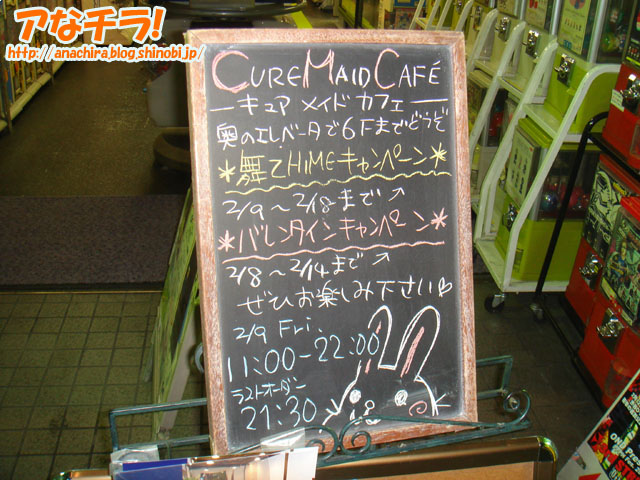 アなチラ!
http://anachira.blog.shinobi.jp/
CURE MAID CAFÉ
ーキュア メイド カフェー
奥のエレベータで6Fまでどうぞ
*舞乙HiMEキャンペーン*
2/9～2/18まで↗
*バレンタインキャンペーン*
2/8～2/14まで↗
ぜひお楽しみ下さい
2/9 Fri.
11:00-22:00
ラストオーダー
21:30